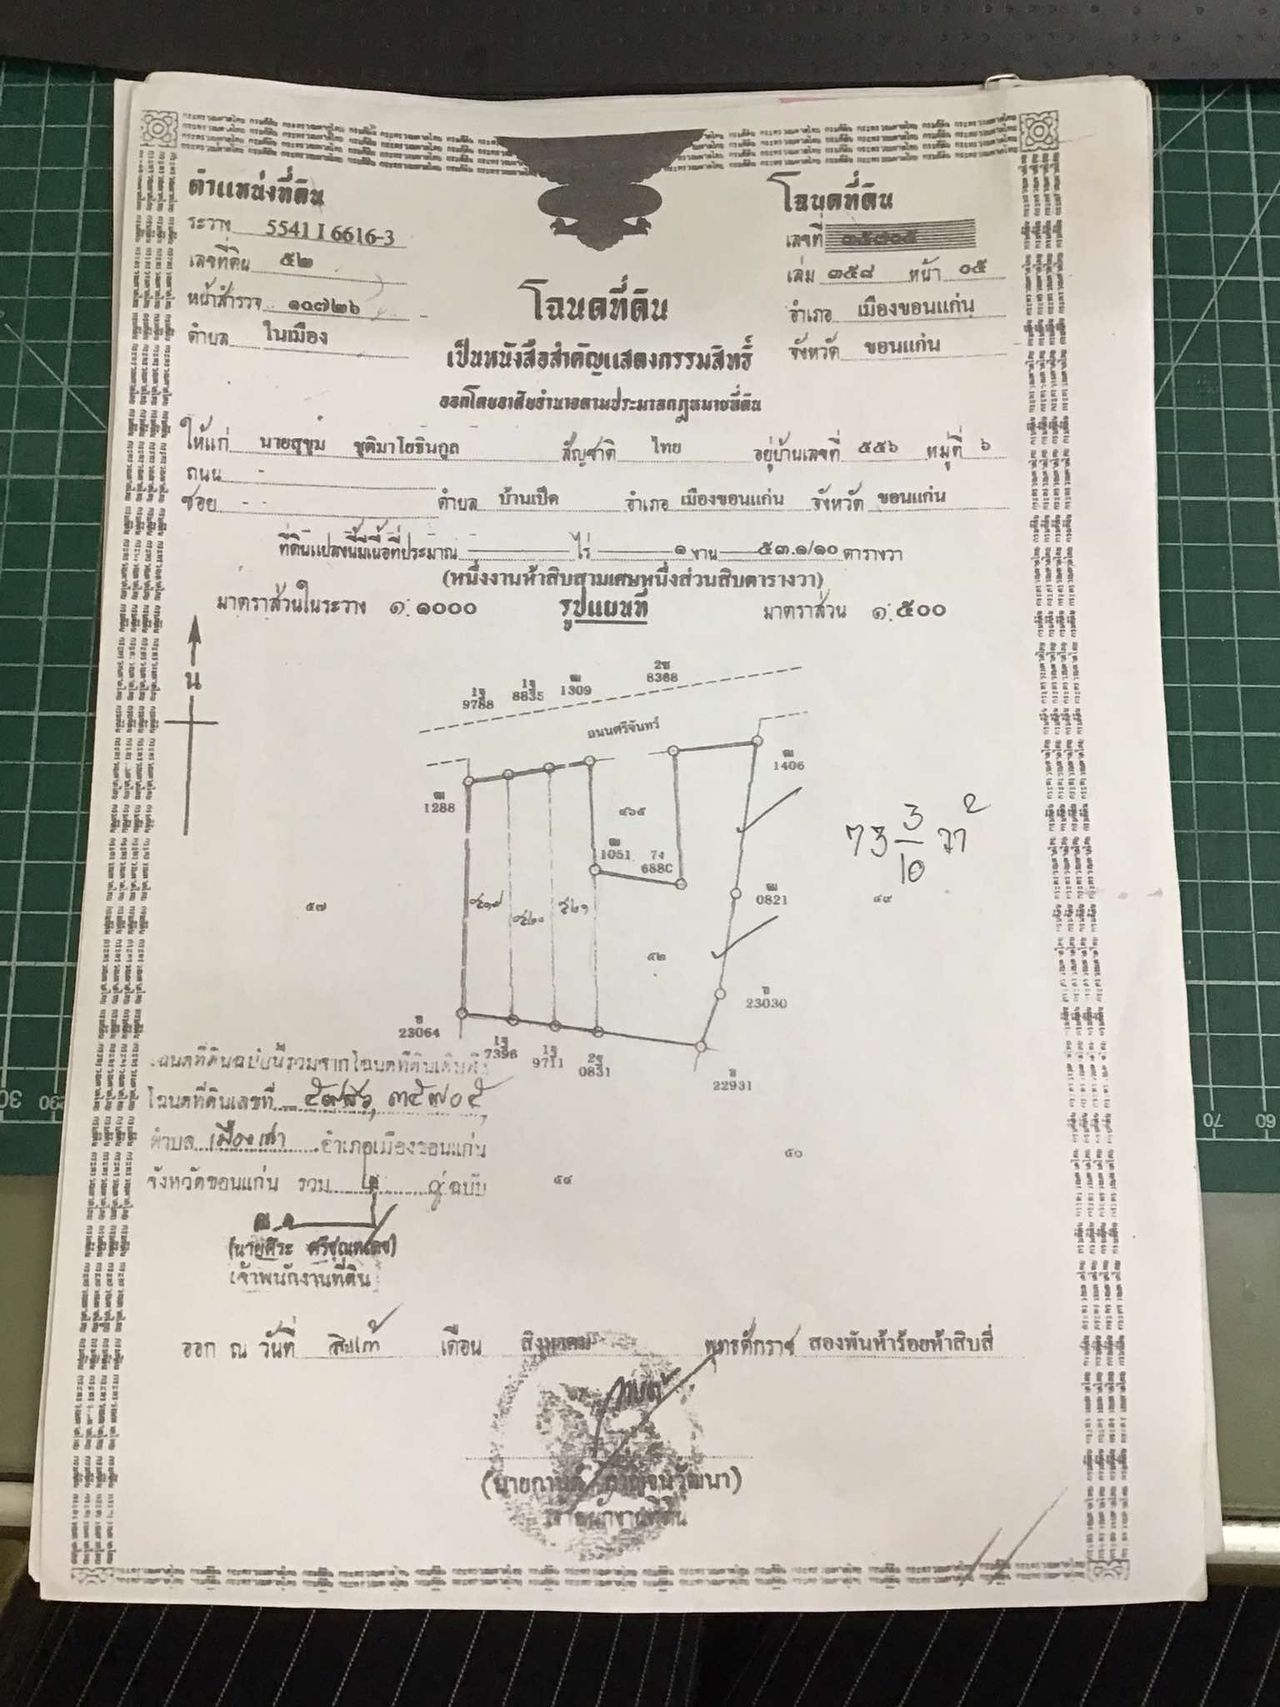 ตำแหน่งที่ดิน
ระวาง 5541 I 6616-3
เลขที่ดิน ๕๒
หน้าสำรวจ ๑๐๗๒๖
ตำบล ในเมือง
โฉนดที่ดิน
เลขที่
เล่ม ๓๕๘ หน้า ๐๕
อำเภอ เมืองขอนแก่น
จังหวัด ขอนแก่น
โฉนดที่ดิน
เป็นหนังสือสำคัญแสดงกรรมสิทธิ์
ออกโดยอาศัยอำนาจตามประมวลกฎหมายที่ดิน
ให้แก่ นายสุขุม ชุติมาโยธินกูล สัญชาติ ไทย อยู่บ้านเลขที่ ๕๕๖ หมู่ที่ ๖
ถนน -
ซอย - ตำบล บ้านเป็ด อำเภอ เมืองขอนแก่น จังหวัด ขอนแก่น
ที่ดินแปลงนี้มีเนื้อที่ประมาณ ไร่ ๑ งาน ๕๓.๑/๑๐ ตารางวา
(หนึ่งงานห้าสิบสามเศษหนึ่งส่วนสิบตารางวา)
มาตราส่วนในระวาง ๑:๑๐๐๐ รูปแผนที่ มาตราส่วน ๑:๕๐๐
น
1ฐ 9788
1ฐ 8835
1309
2ช 8368
ถนนศรีจันทร์
1288
1406
๔๖๕
1051
688C
73 3/10 วา2
0821
๔๙
๕๗
๕๑๙
๕๒๐
๕๒๑
๕๒
23030
23064
1ฐ 7396
1ฐ 9711
2ฐ 0831
22931
โฉนดที่ดินฉบับนี้รวมจากโฉนดที่ดินเดิมคือ
โฉนดที่ดินเลขที่ ๓๕๗๐๕
ตำบล เมืองเก่า อำเภอเมืองขอนแก่น
จังหวัดขอนแก่น รวม ๔ ฉบับ
๕๔
๕๐
เจ้าพนักงานที่ดิน
ออก ณ วันที่ สิบเก้า เดือน สิงหาคม พุทธศักราช สองพันห้าร้อยห้าสิบสี่
(นายกานต์ กาญจนวัฒนา)
เจ้าพนักงานที่ดิน